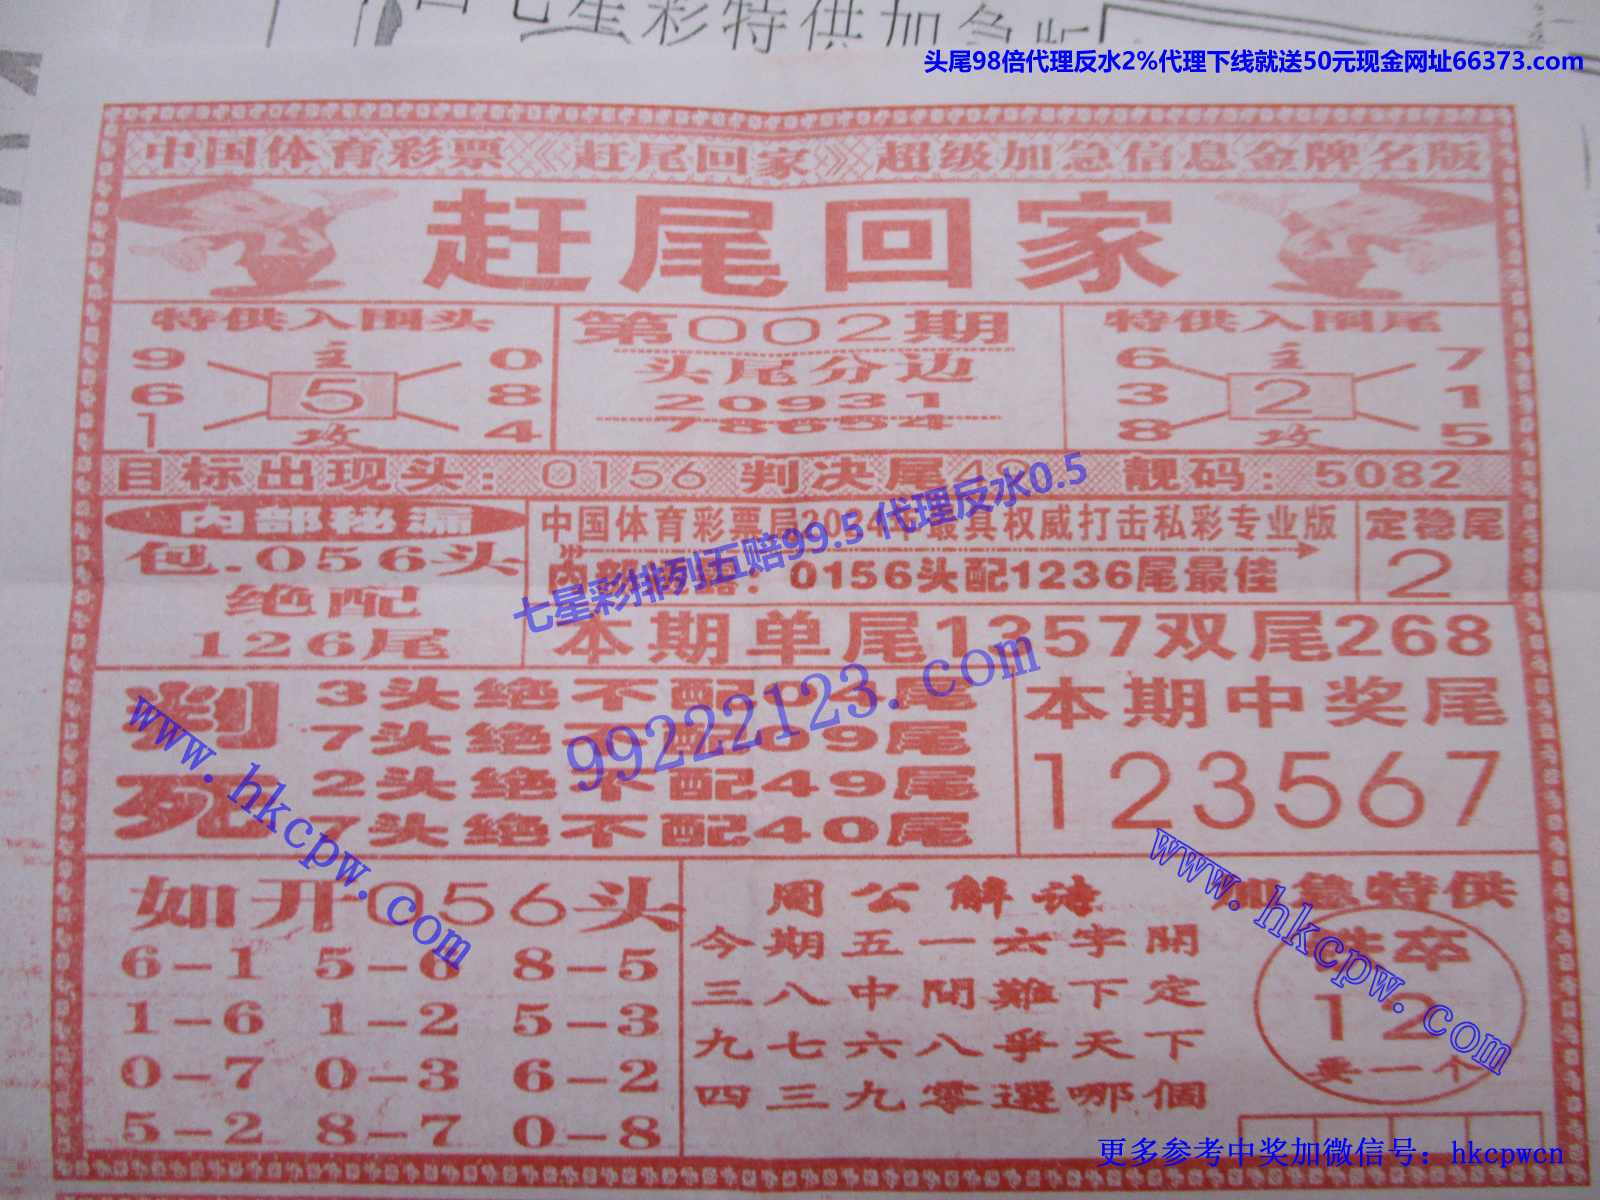 七星彩特供加急版
头尾98倍代理反水2%代理下线就送50元现金网址66373.com
中国体育彩票《赶尾回家》超级加急信息金牌名版
赶尾回家
特供入围头
9 主 0
6 5 8
1 攻 4
第002期
头尾分边
20931
78654
特供入围尾
6 主 7
3 2 1
8 攻 5
目标出现头：0156 判决尾49 靓码：5082
内部秘漏
包.056头
绝配
126尾
中国体育彩票局 最具权威打击私彩专业版
0156头配1236尾最佳
定稳尾
2
七星彩排列五赔99.5 代理反水0.5
本期单尾1357双尾268
99222123.com
判死
3头绝不配 尾
7头绝不配09尾
2头绝不配49尾
7头绝不配40尾
本期中奖尾
123567
www.hkcpw.com
如开056头
6-1 5-6 8-5
1-6 1-2 5-3
0-7 0-3 6-2
5-2 8-7 0-8
周公解谜
今期五一六字開
三八中間難下定
九七六八爭天下
四三九零選哪個
加急特供
12
卖一个
www.hkcpw.com
更多参考中奖加微信号：hkcpwcn